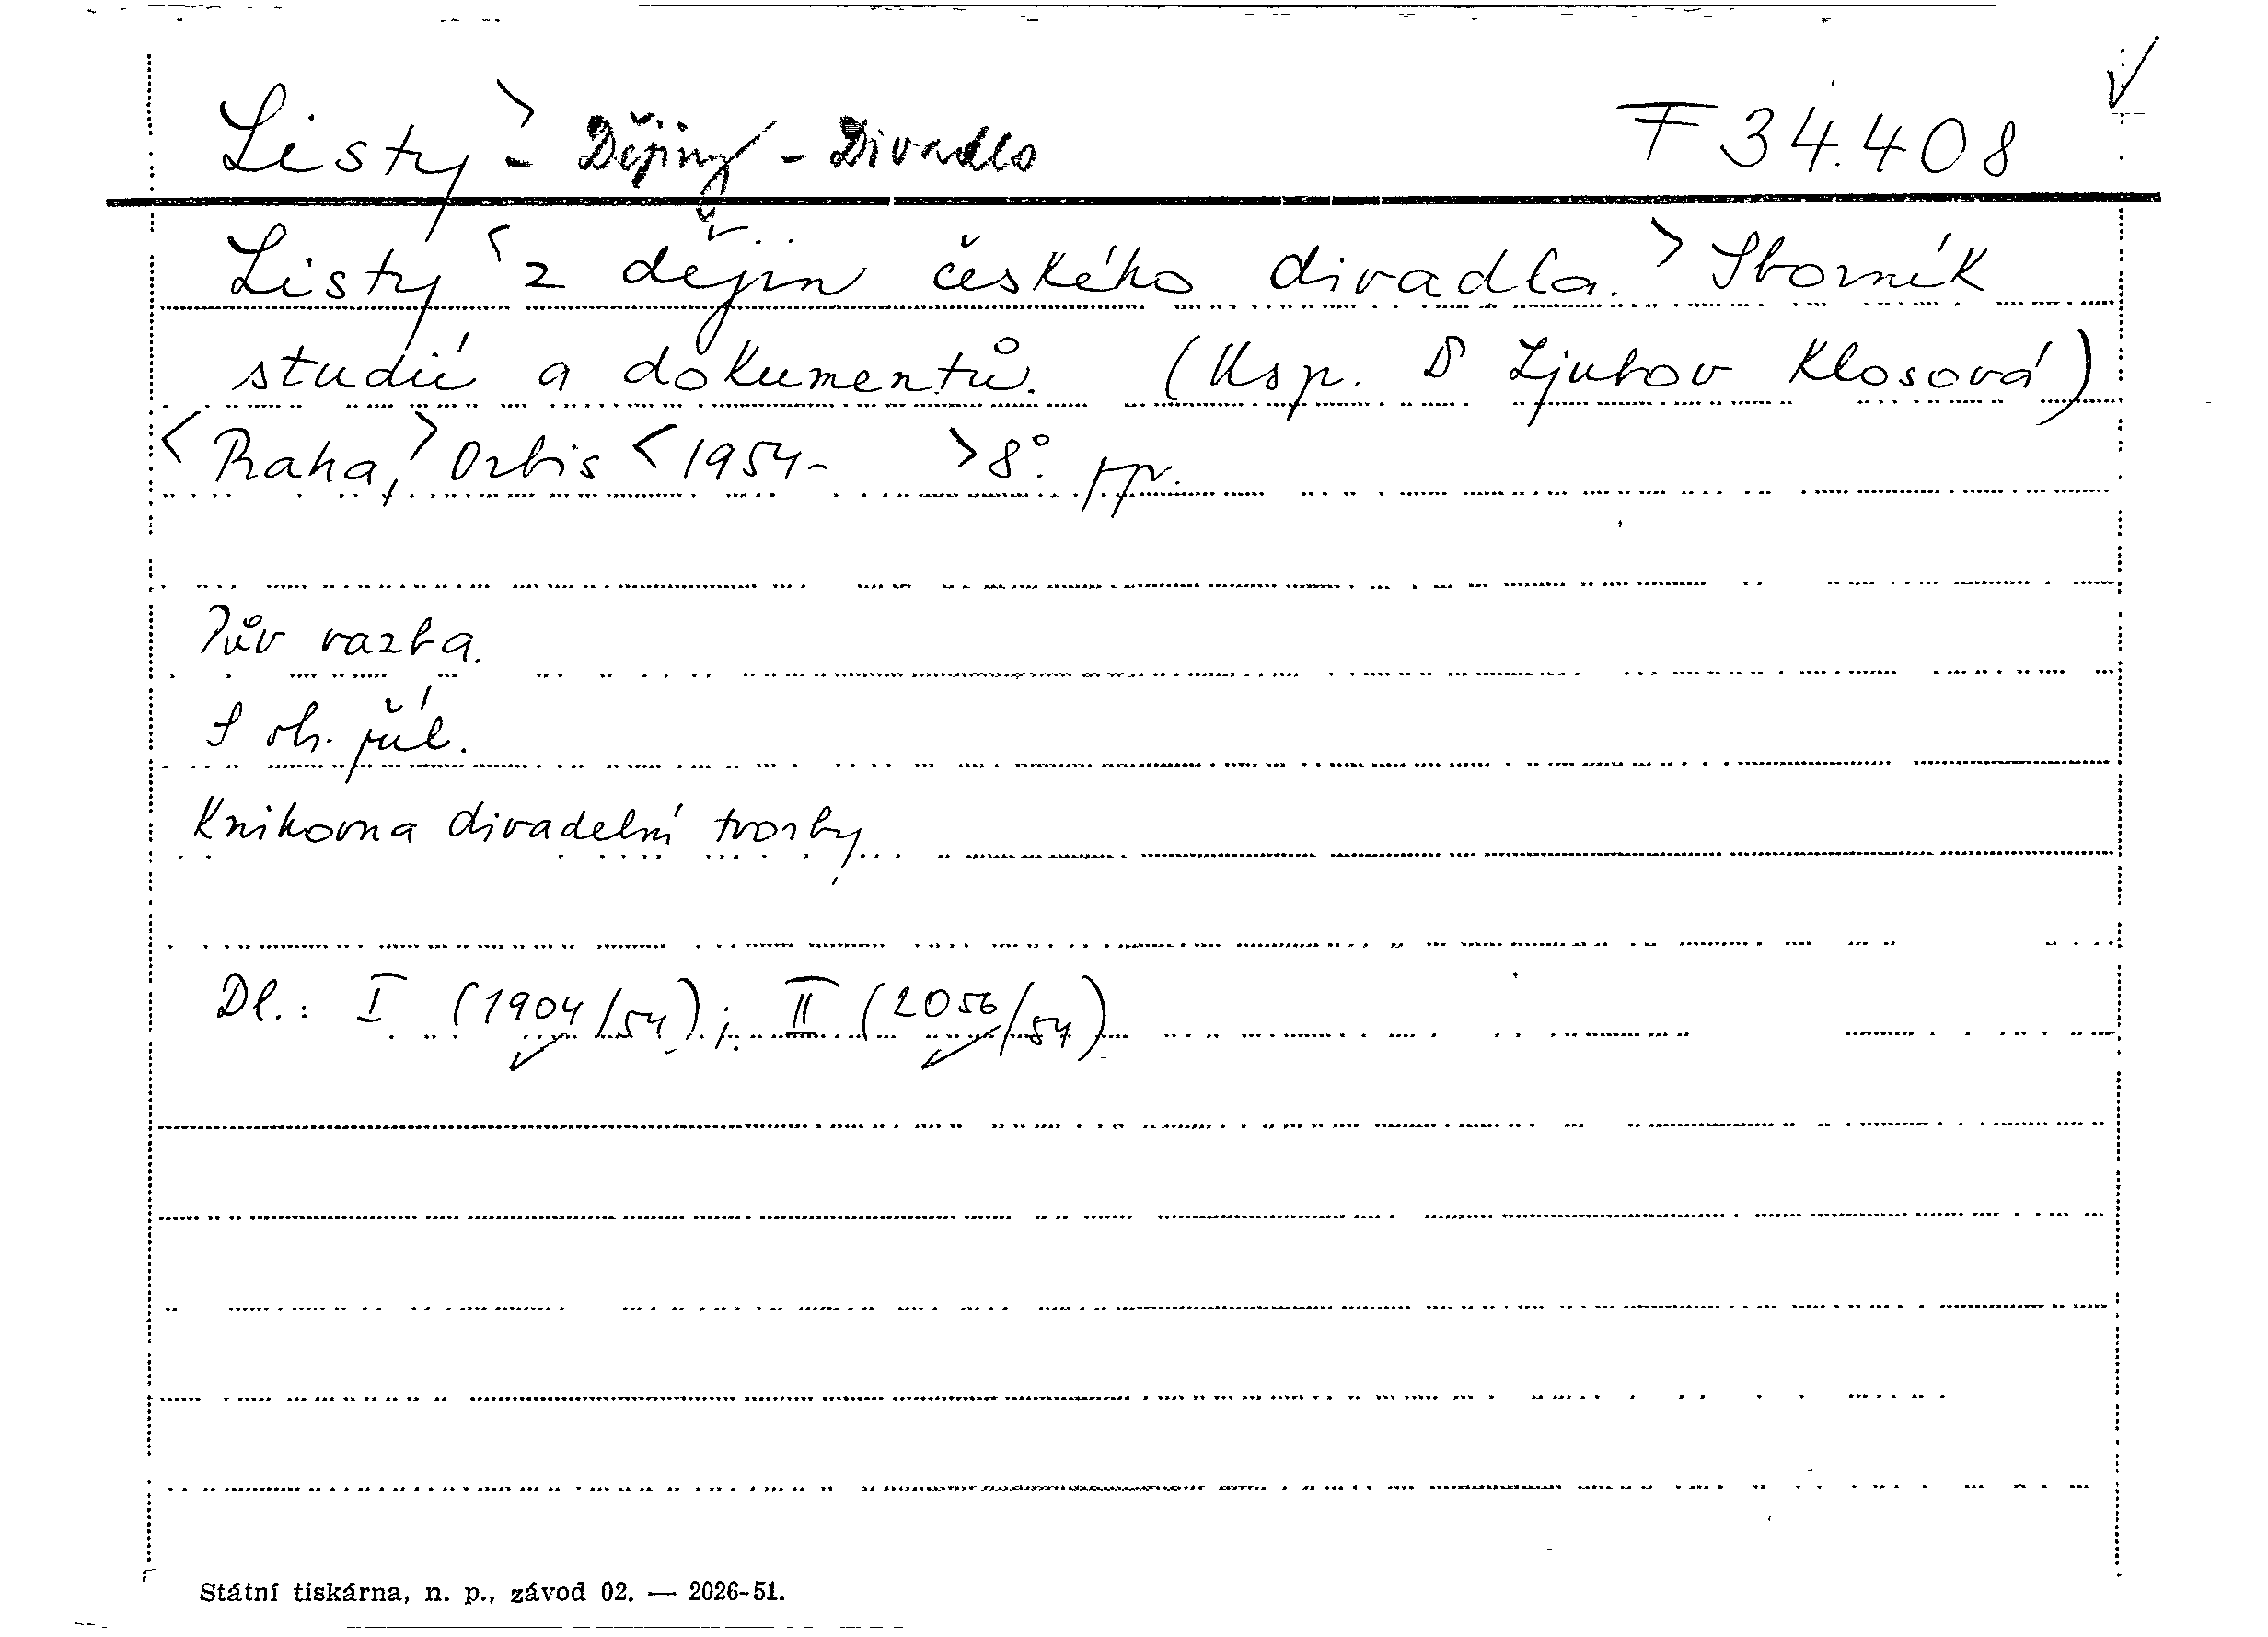 Listy - Dějiny - Divadlo F 34.408
Listy z dějin českého divadla. Sborník
studií a dokumentů. (Usp. Ljubov Klosová)
<Praha,> Orbis <1954- > 8°. pp.
Pův vazba.
S ob. příl.
Knihovna divadelní tvorby
Dl.: I (1904/54); II (2056/54)
Státní tiskárna, n. p., závod 02. — 2026-51.